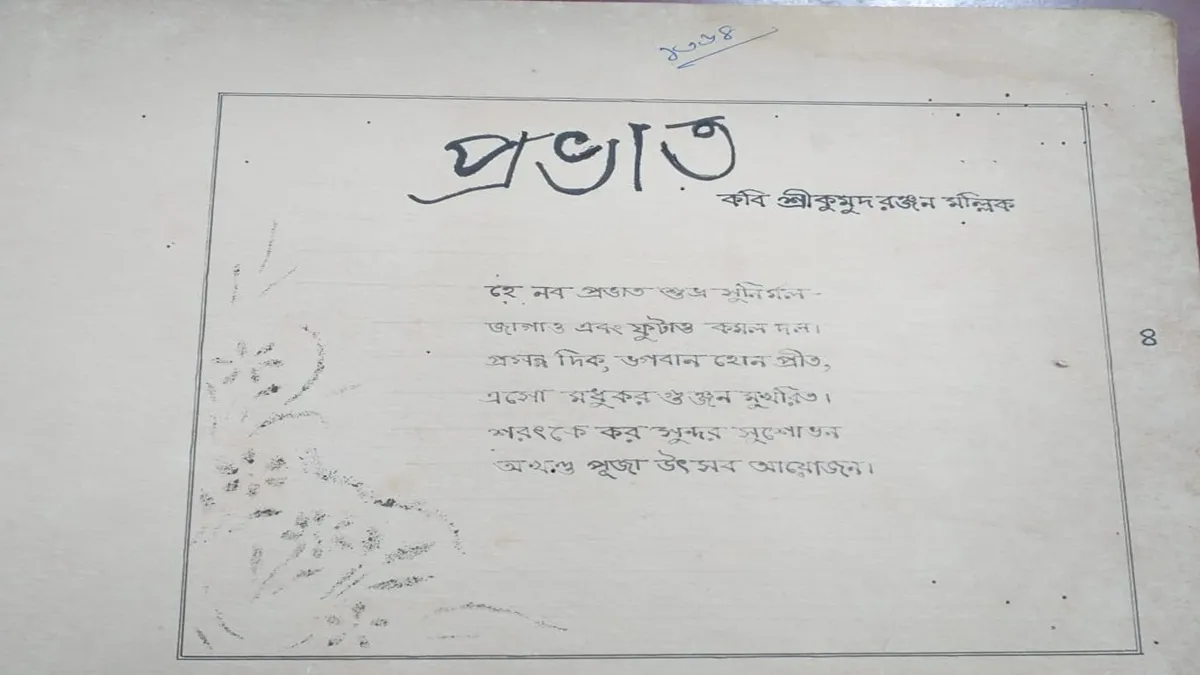 ১৩৬৪
প্রভাত
কবি শ্রীকুমুদ রঞ্জন মল্লিক
হে নব প্রভাত শুভ্র সুনির্মল
জাগাও এবং ফুটাও কমল দল।
প্রসন্ন দিক, ভগবান হোন প্রীত,
এসো মধুকর গুঞ্জন মুখরিত।
শরৎকে কর সুন্দর সুশোভন
অখণ্ড পূজা উৎসব আয়োজন।
৪